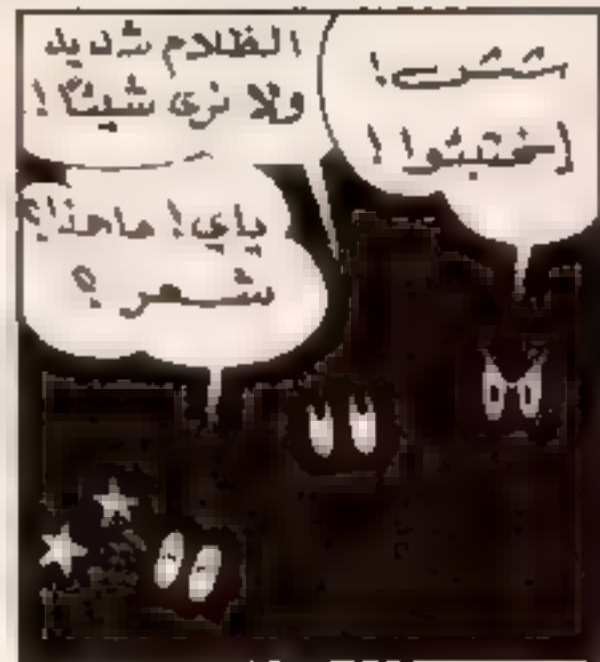 ششش!
إختبئوا!
الظلام شديد
ولا نرى شيئا!
ياي! ماهذا؟
شعر؟